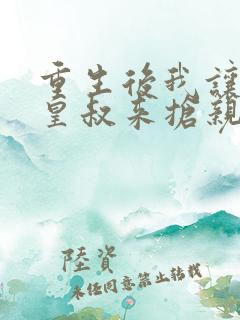 重生後我讓
皇叔来搶親
陸資
未经同意禁止转载